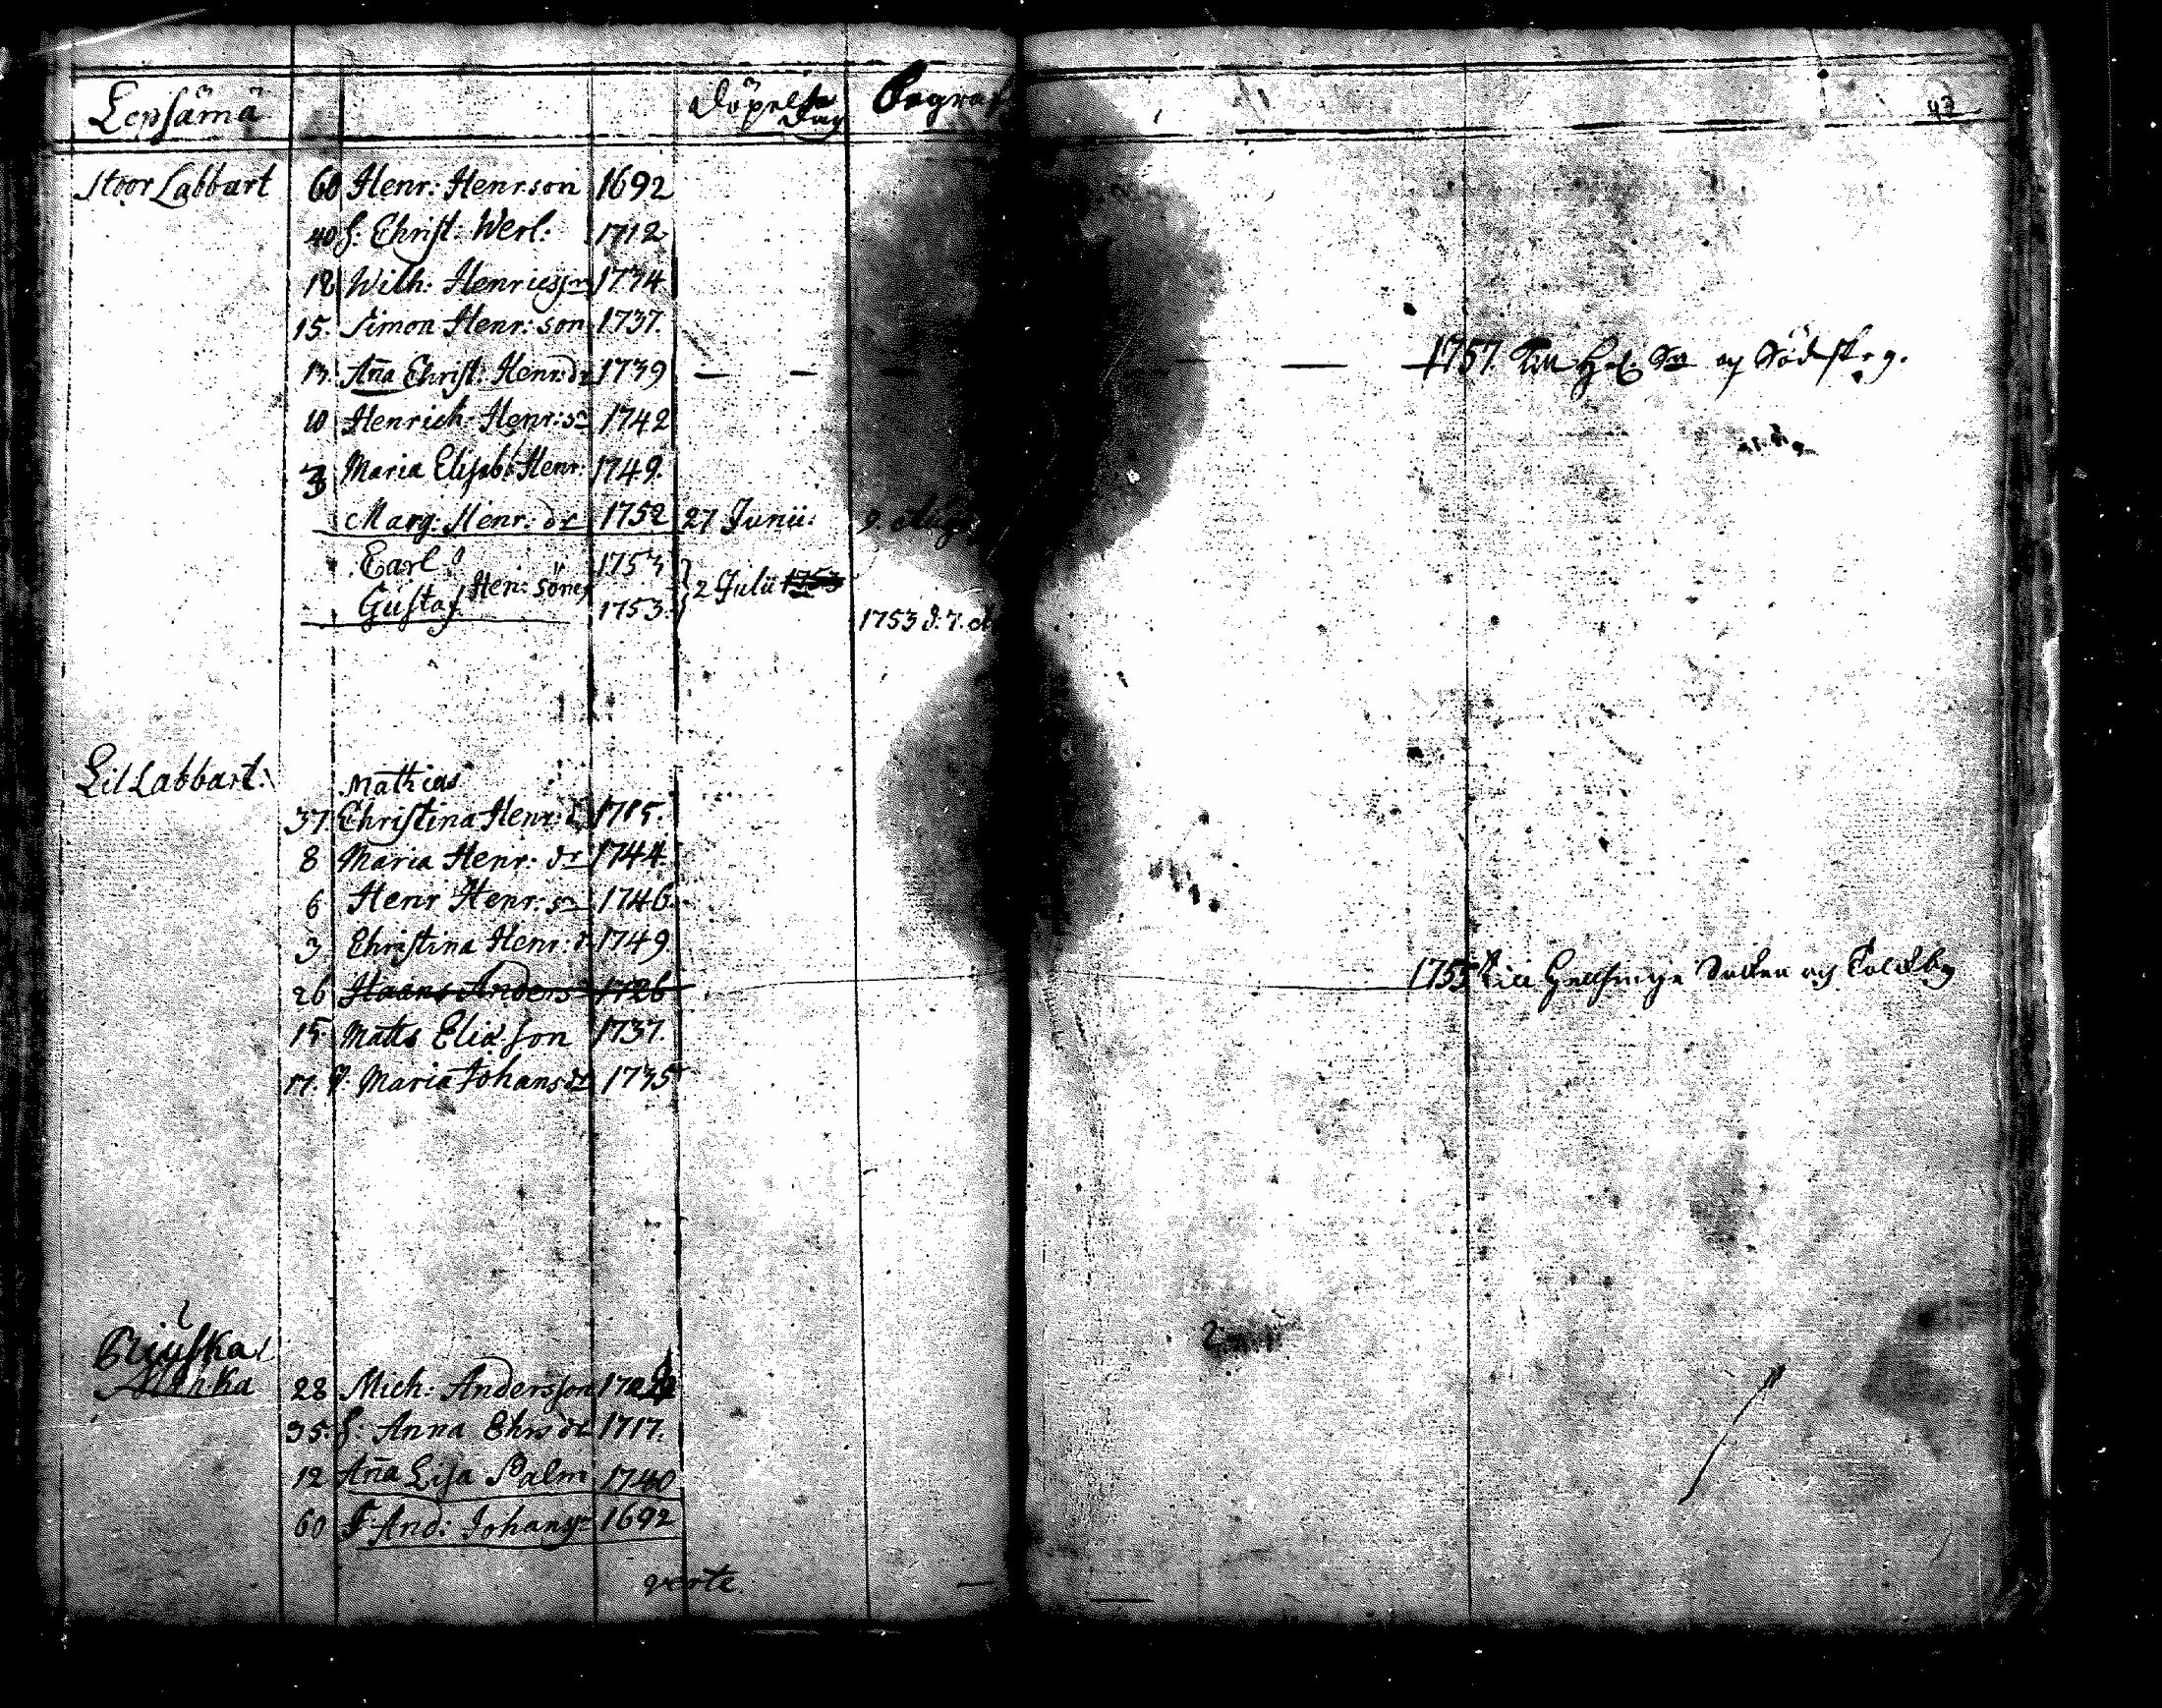 Lepsämä Döpelse Dag Begraf 43
Stoor Labbart 60 Henr: Henr.son 1692
40 h: Christ: Werl: 1712
18 Wilh: Henricss:n 1734
15. Simon Henr: son 1737.
13 Aña Christ: Henr:dr 1739 — — — — — 1757. Till
10 Henrich Henr:sn 1742
3 Maria Elisab: Henr: 1749.
Marg: Henr: dr 1752 27 Junii: 9. Aug
Carl 1753
Hen: söner 2 Julii 1753
Gustaf 1753. 1753 d. 7.
Lil Labbart.
Mathias
37 Christina Henr: d 1715.
8 Maria Henr: dr 1744.
6 Henr Henr: sn 1746.
3 Christina Henr: d 1749
26 Haans Anders 1726 1755 till Socken och
15 Matts Eliæ son 1737.
17. P. Maria Johans dr 1735
Ahlska
28 Mich: Andersson
35. h: Anna Ehrs dr 1717.
12 Aña Lisa Palm 1740
60 F: And: Johans:n 1692
verte